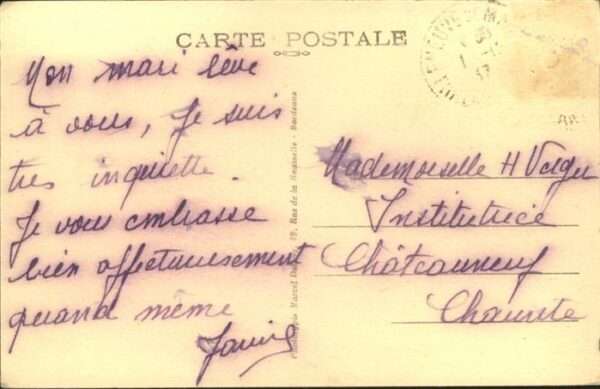 CARTE POSTALE
Mon mari rêve
à vous, Je suis
tres inquiette.
Je vous embrasse
bien affectueusement
quand même
Mademoiselle H
Institutrice
Châteauneuf
Charente
Marcel
Rue de la
Bordeaux